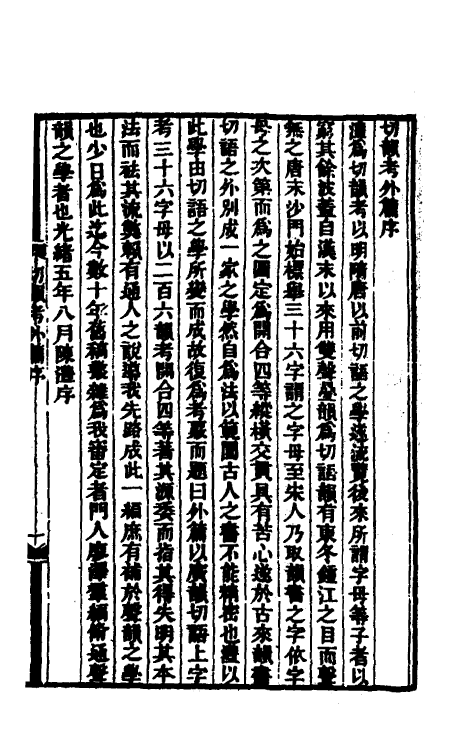 切韻考外篇序
澧爲切韻考以明隋唐以前切語之學遂流覽後來所謂字母等子者以
窮其餘波蓋自漢末以來用雙聲疊韻爲切語韻有東冬鍾江之目而聲
無之唐末沙門始標舉三十六字謂之字母至宋人乃取韻書之字依字
母之次第而爲之圖定爲開合四等縱橫交貫具有苦心遂於古來韻書
切語之外別成一家之學然自爲法以範圍古人之書不能精密也澧以
此學由切語之學所變而成故復爲考覈而題曰外篇以廣韻切語上字
考三十六字母以二百六韻考開合四等著其源委而指其得失明其本
法而祛其流弊賴有通人之說導我先路成此一編庶有補於聲韻之學
也少日爲此迄今數十年舊稿叢雜爲我審定者門人廖澤羣編脩通聲
韻之學者也光緒五年八月陳澧序
切韻考外篇序
一